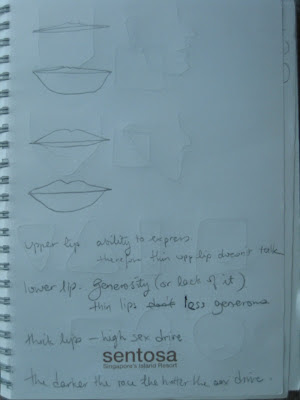 upper lip ability to express
therefore thin upp lip doesn't talk
lower lip. Generosity (or lack of it)
thin lips less generous
thick lips – high sex drive
sentosa
Singapore's Island Resort
the darker the the hotter the sex drive.